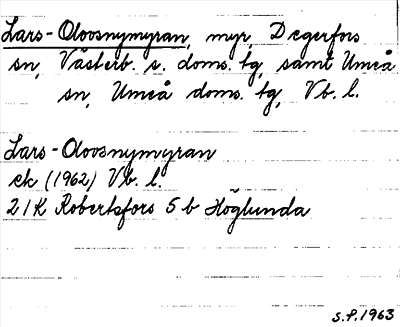 Lars-Oloosnymyran, myr, Degerfors
sn, Västerb. s. doms. tg, samt Umeå
sn, Umeå doms. tg, Vb. l.
Lars-Oloosnymyran
ek (1962) Vb. l.
21K Robertsfors 5 b Höglunda
S.P. 1963